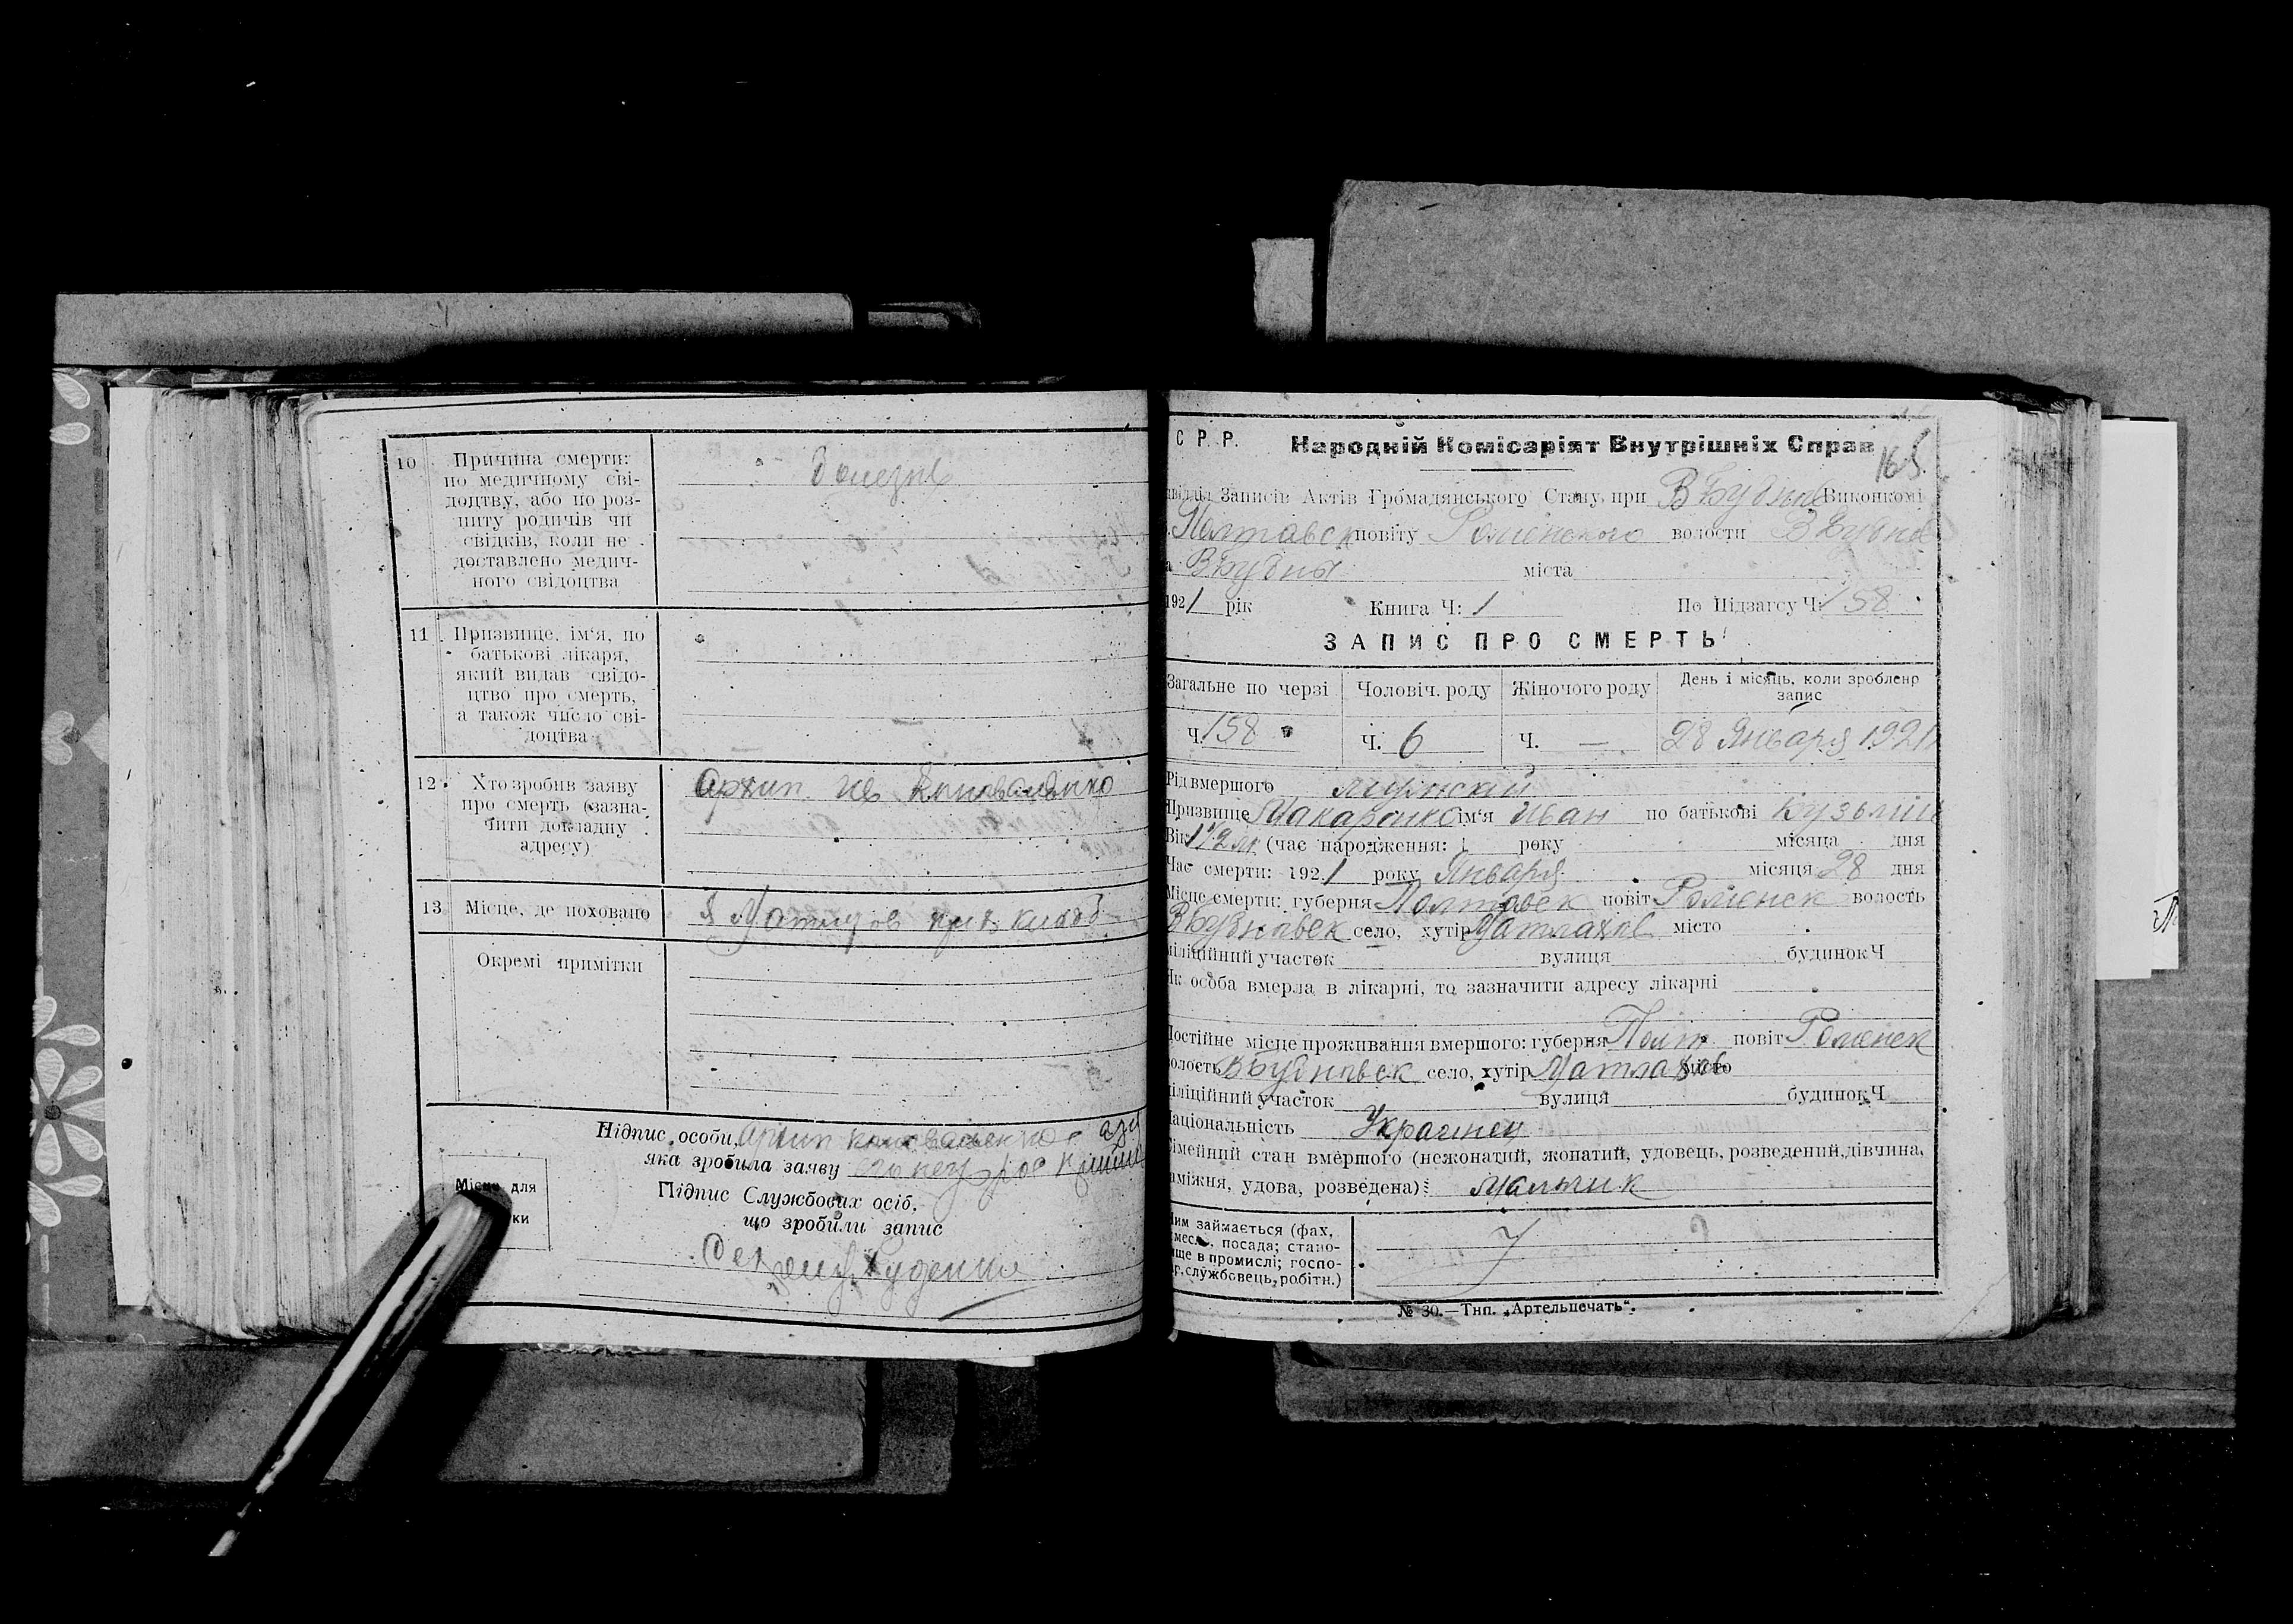 10 Причина смерти:
по медичному сві-
доцтву, або по роз-
питу родичів чи
свідків, коли не
доставлено медич-
ного свідоцтва
болезни
11 Призвище, ім'я, по
батькові лікаря,
який видав свідо-
цтво про смерть,
а також число сві-
доцтва
—
12 Хто зробив заяву
про смерть (зазна-
чити докладну
адресу)
Архип Ив Коноваленко
13 Місце, де поховано
Окремі примітки
Підпис особи, Архип Коноваленко а
яка зробила заяву
Місце для
ки
Підпис Службових осіб,
що зробили запис
С Р. Р. Народній Комісаріят Внутрішніх Справ
165
Записів Актів Громадянського Стану при ВБубнів Виконкомі
Полтавск повіту Роменского волости ВБубнов
ВБубны міста
1921 рік Книга Ч: 1 По Підзагсу Ч: 158
ЗАПИС ПРО СМЕРТЬ
Загальне по черзі Чоловіч. роду Жіночого роду День і місяць, коли зроблено
запис
Ч. 158 Ч. 6 Ч. — 28 Января 1921
Рід вмершого мужский
Призвище Макаренко ім'я Иван по батькові Кузьмич
Вік 1/2 (час народження: року місяца дня
Час смерти: 1921 року Января місяця 28 дня
Місце смерти: губерня Полтавск повіт Роменск волость
ВБубновск село, хутір Матлахов місто
міліційний участок вулиця будинок Ч
Як особа вмерла в лікарні, то зазначити адресу лікарні
Постійне місце проживания вмершого: губерня Полт повіт Роменск
волость ВБубновск село, хутір Матлахов місто
міліційний участок вулиця будинок Ч
Національність Украинец
Сімейний стан вмершого (нежонатий, жонатий, удовець, розведений, дівчина,
заміжня, удова, розведена) Мальчик
Чим займається (фах,
ремесл., посада; стано-
вище в промислі; госпо-
р. службовець, робітн.)
№ 30.—Тип. „Артельпечать".